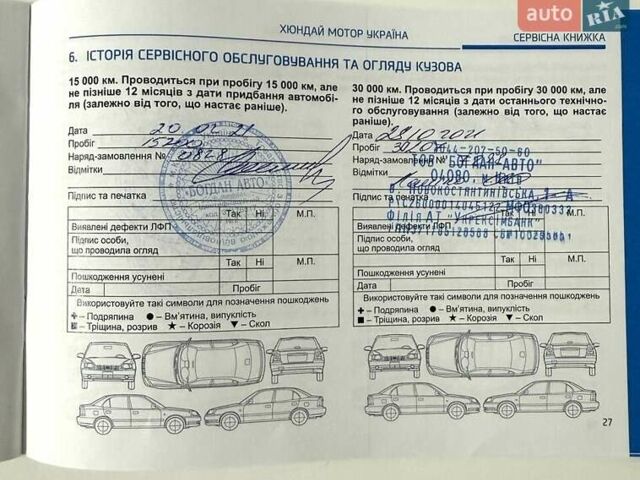 auto RIA
ХЮНДАЙ МОТОР УКРАЇНА
СЕРВІСНА КНИЖКА
6. ІСТОРІЯ СЕРВІСНОГО ОБСЛУГОВУВАННЯ ТА ОГЛЯДУ КУЗОВА
15 000 км. Проводиться при пробігу 15 000 км, але
не пізніше 12 місяців з дати придбання автомобі-
ля (залежно від того, що настає раніше).
Дата 20 02 21
Пробіг 15200
Наряд-замовлення №
Відмітки
Підпис та печатка
"БОГДАН АВТО"
Так Ні М.П.
Виявлені дефекти ЛФП
Підпис особи,
що проводила огляд
Так Ні М.П.
Пошкодження усунені
Дата Пробіг
Використовуйте такі символи для позначення пошкоджень
- Подряпина - Вм'ятина, випуклість
- Тріщина, розрив ★ - Корозія ▼ - Скол
30 000 км. Проводиться при пробігу 30 000 км, але
не пізніше 12 місяців з дати останнього технічно-
го обслуговування (залежно від того, що настає
раніше).
Дата
Пробіг
044-207-50-60
Наряд-замовлення №
ТОВ "БОГДАН-АВТО"
04080, м.
Відмітки
в. НОВОКОСТЯНТИНІВСЬКА 1-А
Підпис та печатка
МФО380333
Філія АТ "УКРЕКСІМБАНК"
Так Ні М.П.
Виявлені дефекти ЛФП
Підпис особи,
що проводила огляд
Так Ні М.П.
Пошкодження усунені
Дата Пробіг
Використовуйте такі символи для позначення пошкоджень
- Подряпина - Вм'ятина, випуклість
- Тріщина, розрив ★ - Корозія ▼ - Скол
27